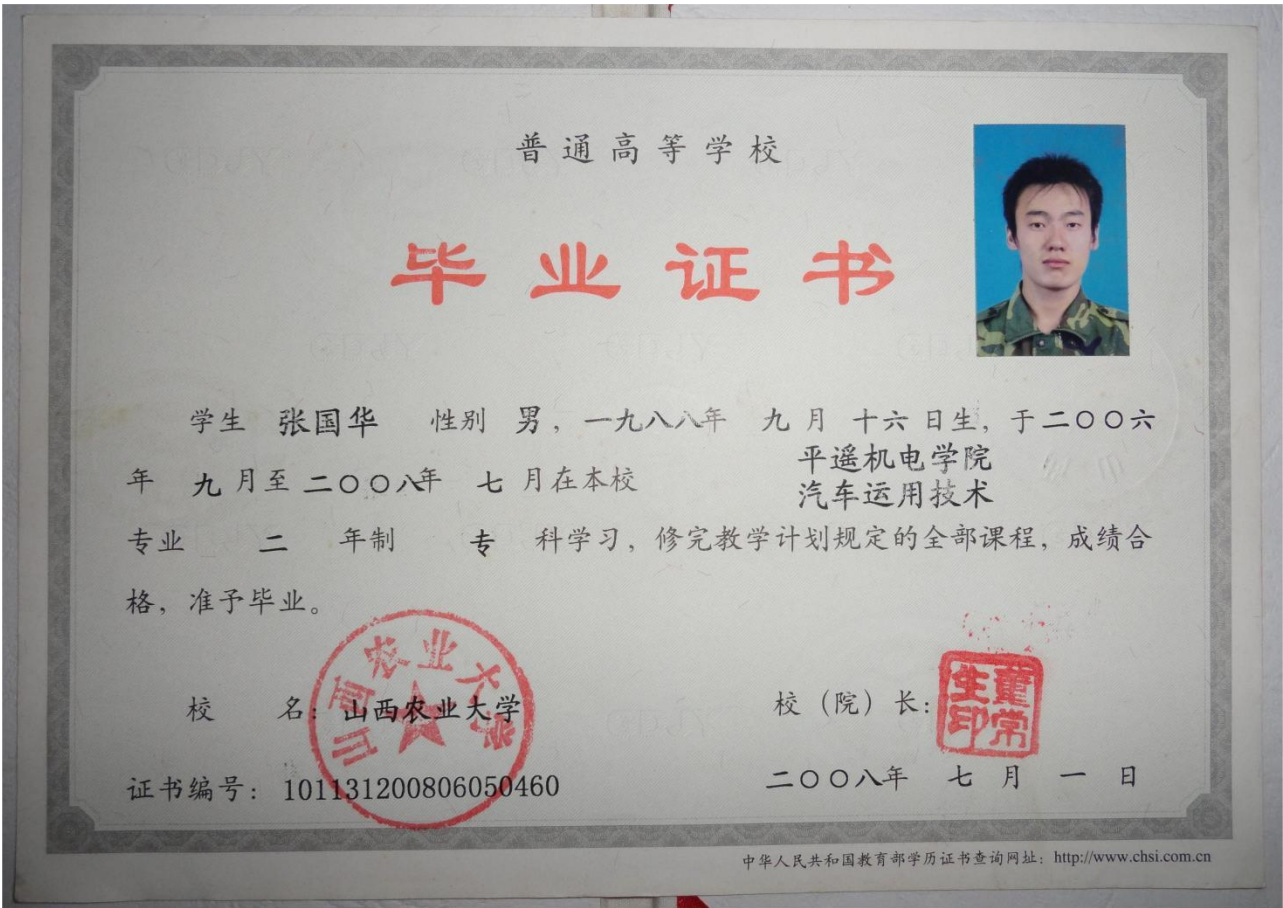 普通高等学校
毕业证书
学生 张国华 性别 男，一九八八年 九月 十六日生，于二〇〇六
年 九月至二〇〇八年 七月在本校 平遥机电学院
汽车运用技术
专业 二 年制 专 科学习，修完教学计划规定的全部课程，成绩合
格，准予毕业。
山西农业大学
校 名：山西农业大学
校（院）长：
董常生印
证书编号：101131200806050460
二〇〇八年 七月 一日
中华人民共和国教育部学历证书查询网址：http://www.chsi.com.cn